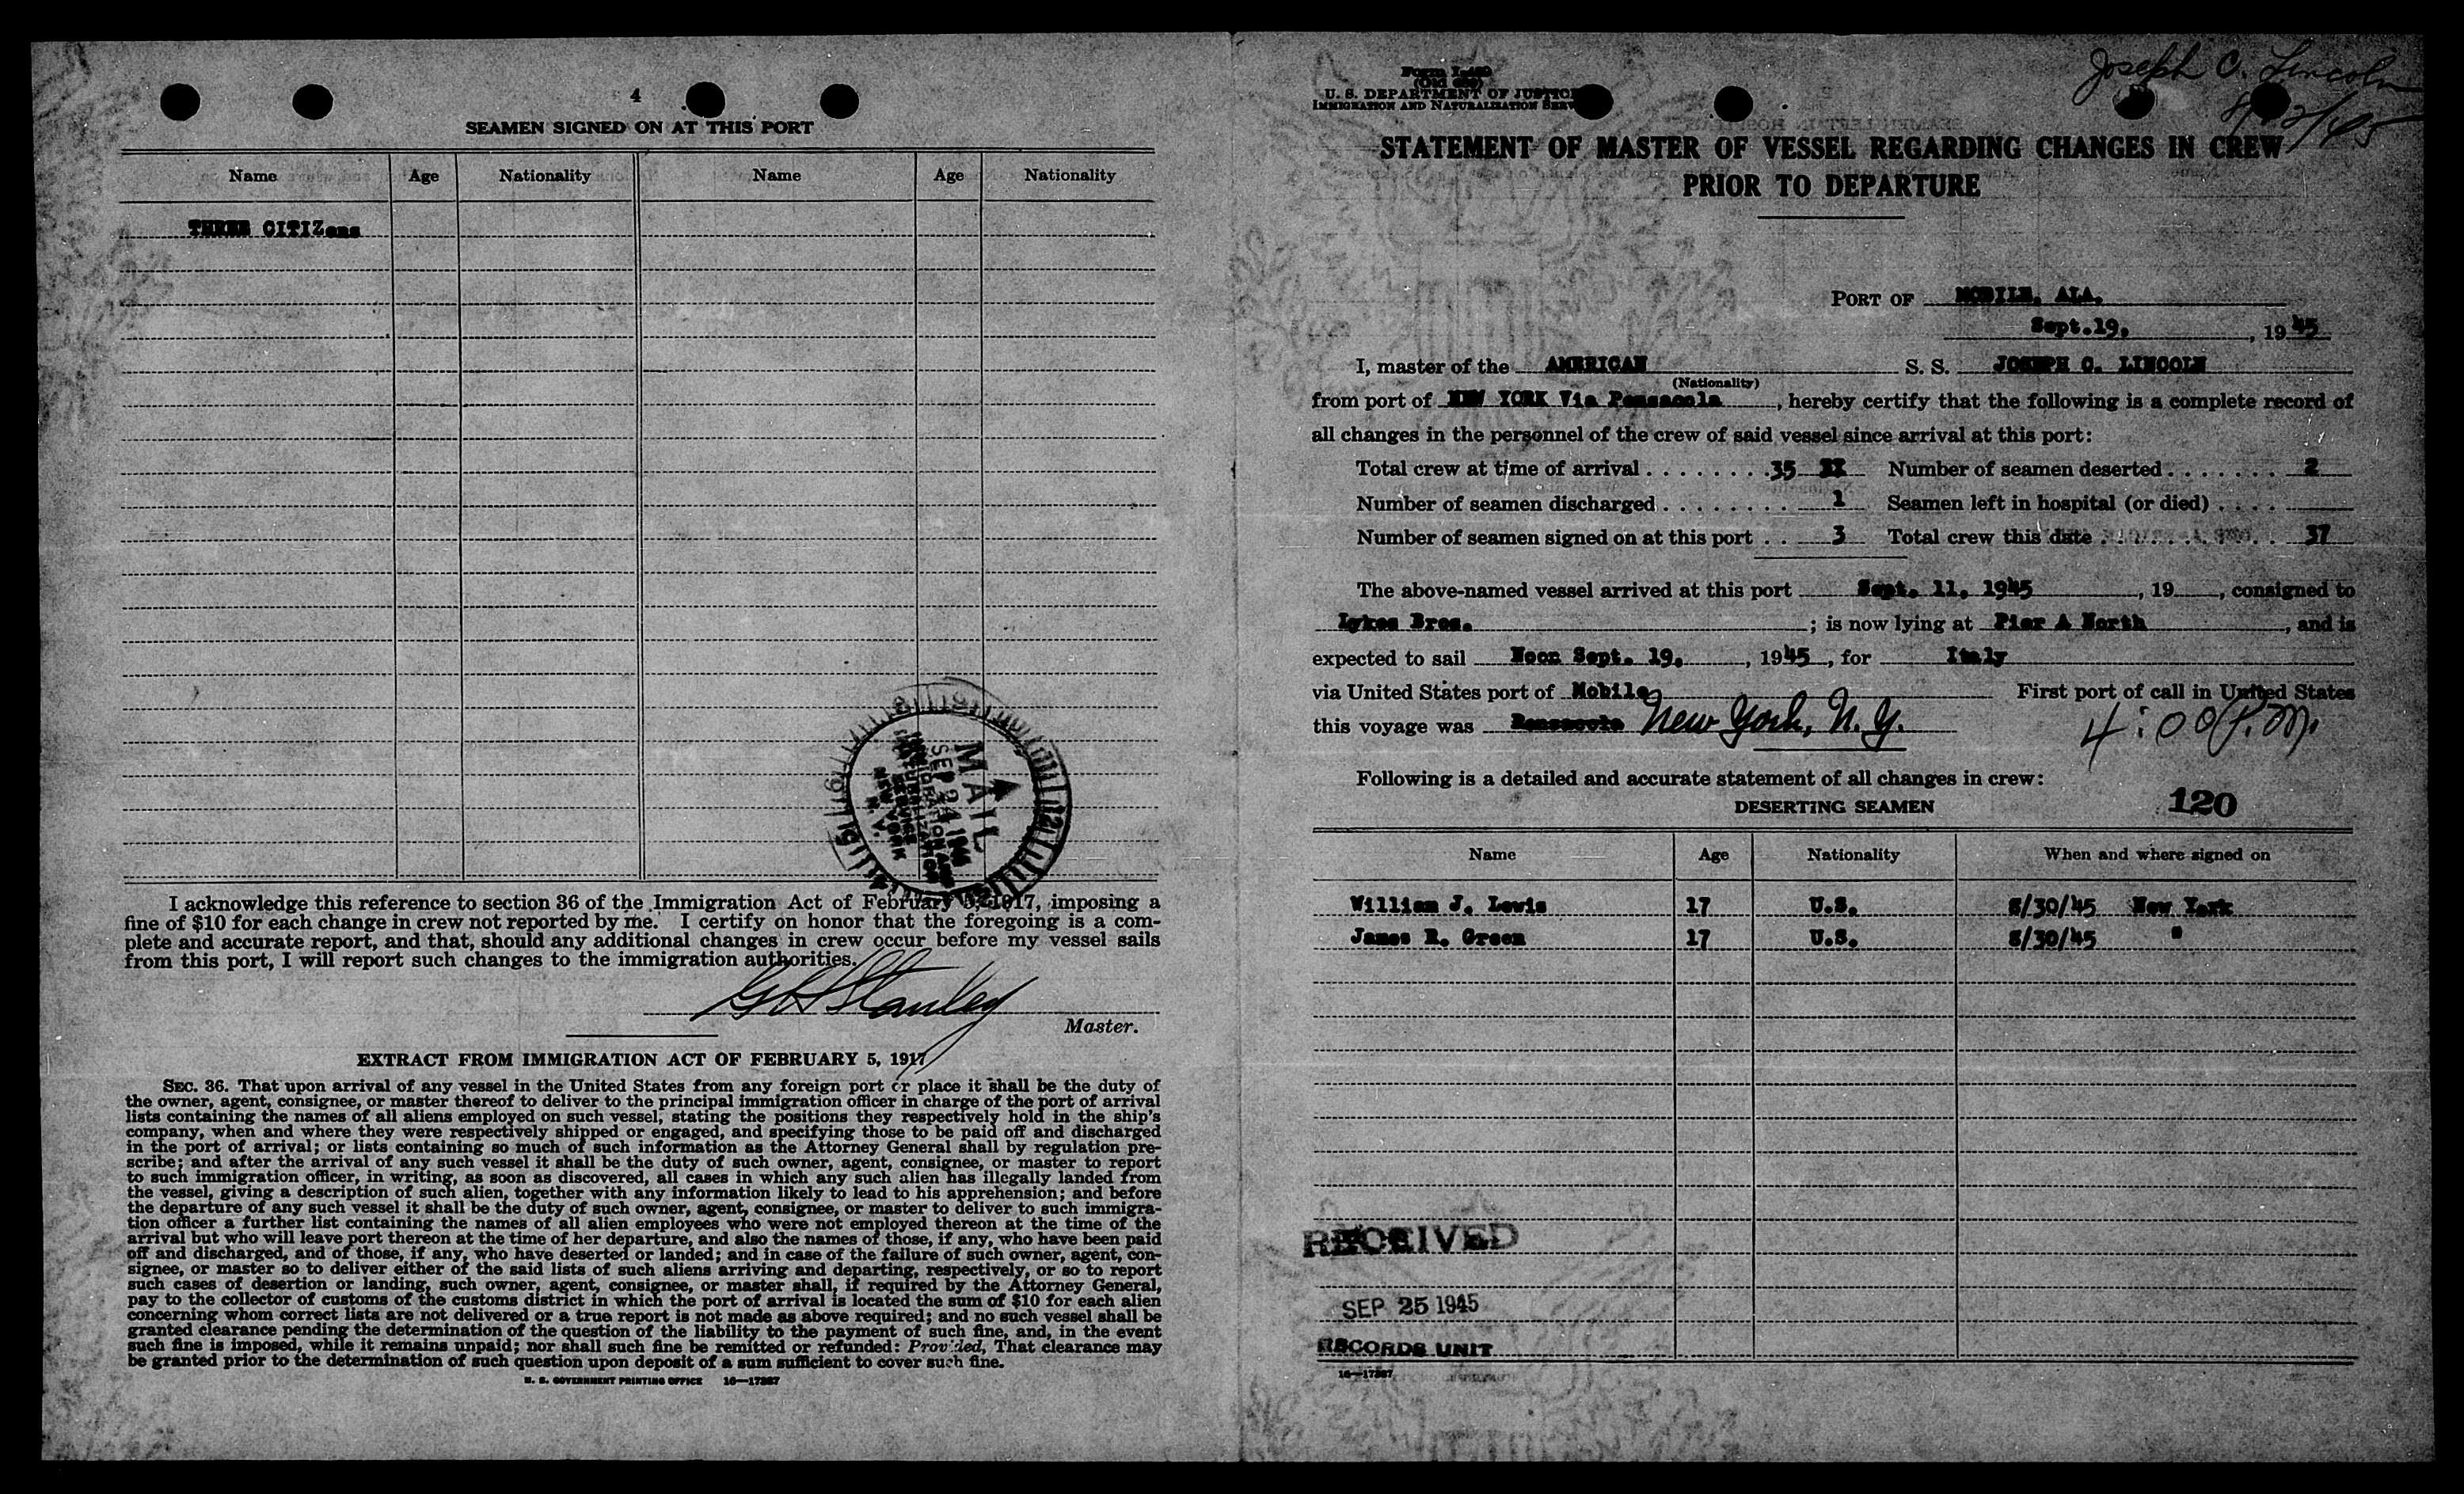 4
SEAMEN SIGNED ON AT THIS PORT
Name Age Nationality Name Age Nationality
THREE CITIZens
MAIL
SEP 24 1945
IMMIGRATION AND
NATURALIZATION
SERVICE
NEW YORK
N. Y.
I acknowledge this reference to section 36 of the Immigration Act of February 5, 1917, imposing a
fine of $10 for each change in crew not reported by me. I certify on honor that the foregoing is a com-
plete and accurate report, and that, should any additional changes in crew occur before my vessel sails
from this port, I will report such changes to the immigration authorities.
G H Stanley
Master.
EXTRACT FROM IMMIGRATION ACT OF FEBRUARY 5, 1917
SEC. 36. That upon arrival of any vessel in the United States from any foreign port or place it shall be the duty of
the owner, agent, consignee, or master thereof to deliver to the principal immigration officer in charge of the port of arrival
lists containing the names of all aliens employed on such vessel, stating the positions they respectively hold in the ship's
company, when and where they were respectively shipped or engaged, and specifying those to be paid off and discharged
in the port of arrival; or lists containing so much of such information as the Attorney General shall by regulation pre-
scribe; and after the arrival of any such vessel it shall be the duty of such owner, agent, consignee, or master to report
to such immigration officer, in writing, as soon as discovered, all cases in which any such alien has illegally landed from
the vessel, giving a description of such alien, together with any information likely to lead to his apprehension; and before
the departure of any such vessel it shall be the duty of such owner, agent, consignee, or master to deliver to such immigra-
tion officer a further list containing the names of all alien employees who were not employed thereon at the time of the
arrival but who will leave port thereon at the time of her departure, and also the names of those, if any, who have been paid
off and discharged, and of those, if any, who have deserted or landed; and in case of the failure of such owner, agent, con-
signee, or master so to deliver either of the said lists of such aliens arriving and departing, respectively, or so to report
such cases of desertion or landing, such owner, agent, consignee, or master shall, if required by the Attorney General,
pay to the collector of customs of the customs district in which the port of arrival is located the sum of $10 for each alien
concerning whom correct lists are not delivered or a true report is not made as above required; and no such vessel shall be
granted clearance pending the determination of the question of the liability to the payment of such fine, and, in the event
such fine is imposed, while it remains unpaid; nor shall such fine be remitted or refunded: Provided, That clearance may
be granted prior to the determination of such question upon deposit of a sum sufficient to cover such fine.
U. S. GOVERNMENT PRINTING OFFICE 16—17287
U. S. DEPARTMENT OF JUSTICE
IMMIGRATION AND NATURALIZATION SERV
Joseph C. Lincoln
STATEMENT OF MASTER OF VESSEL REGARDING CHANGES IN CREW
PRIOR TO DEPARTURE
PORT OF MOBILE, ALA.
Sept.19, , 1945
I, master of the AMERICAN S. S. JOSEPH C. LINCOLN
(Nationality)
from port of NEW YORK Via Pensacola, hereby certify that the following is a complete record of
all changes in the personnel of the crew of said vessel since arrival at this port:
Total crew at time of arrival . . . . . . . 35 XX Number of seamen deserted . . . . . . . 2
Number of seamen discharged . . . . . . . . 1 Seamen left in hospital (or died) . . . .
Number of seamen signed on at this port . . 3 Total crew this date . . . . . . . . 37
The above-named vessel arrived at this port Sept. 11, 1945 , 19 , consigned to
Lykes Bros. ; is now lying at Pier A North , and is
expected to sail Noon Sept. 19, , 1945 , for Italy
via United States port of Mobile First port of call in United States
this voyage was Pensacola New York, N. Y. 4:00 P.M.
Following is a detailed and accurate statement of all changes in crew:
DESERTING SEAMEN 120
Name Age Nationality When and where signed on
William J. Lewis 17 U.S. 8/30/45 New York
James R. Green 17 U.S. 8/30/45 "
RECEIVED
SEP 25 1945
RECORDS UNIT